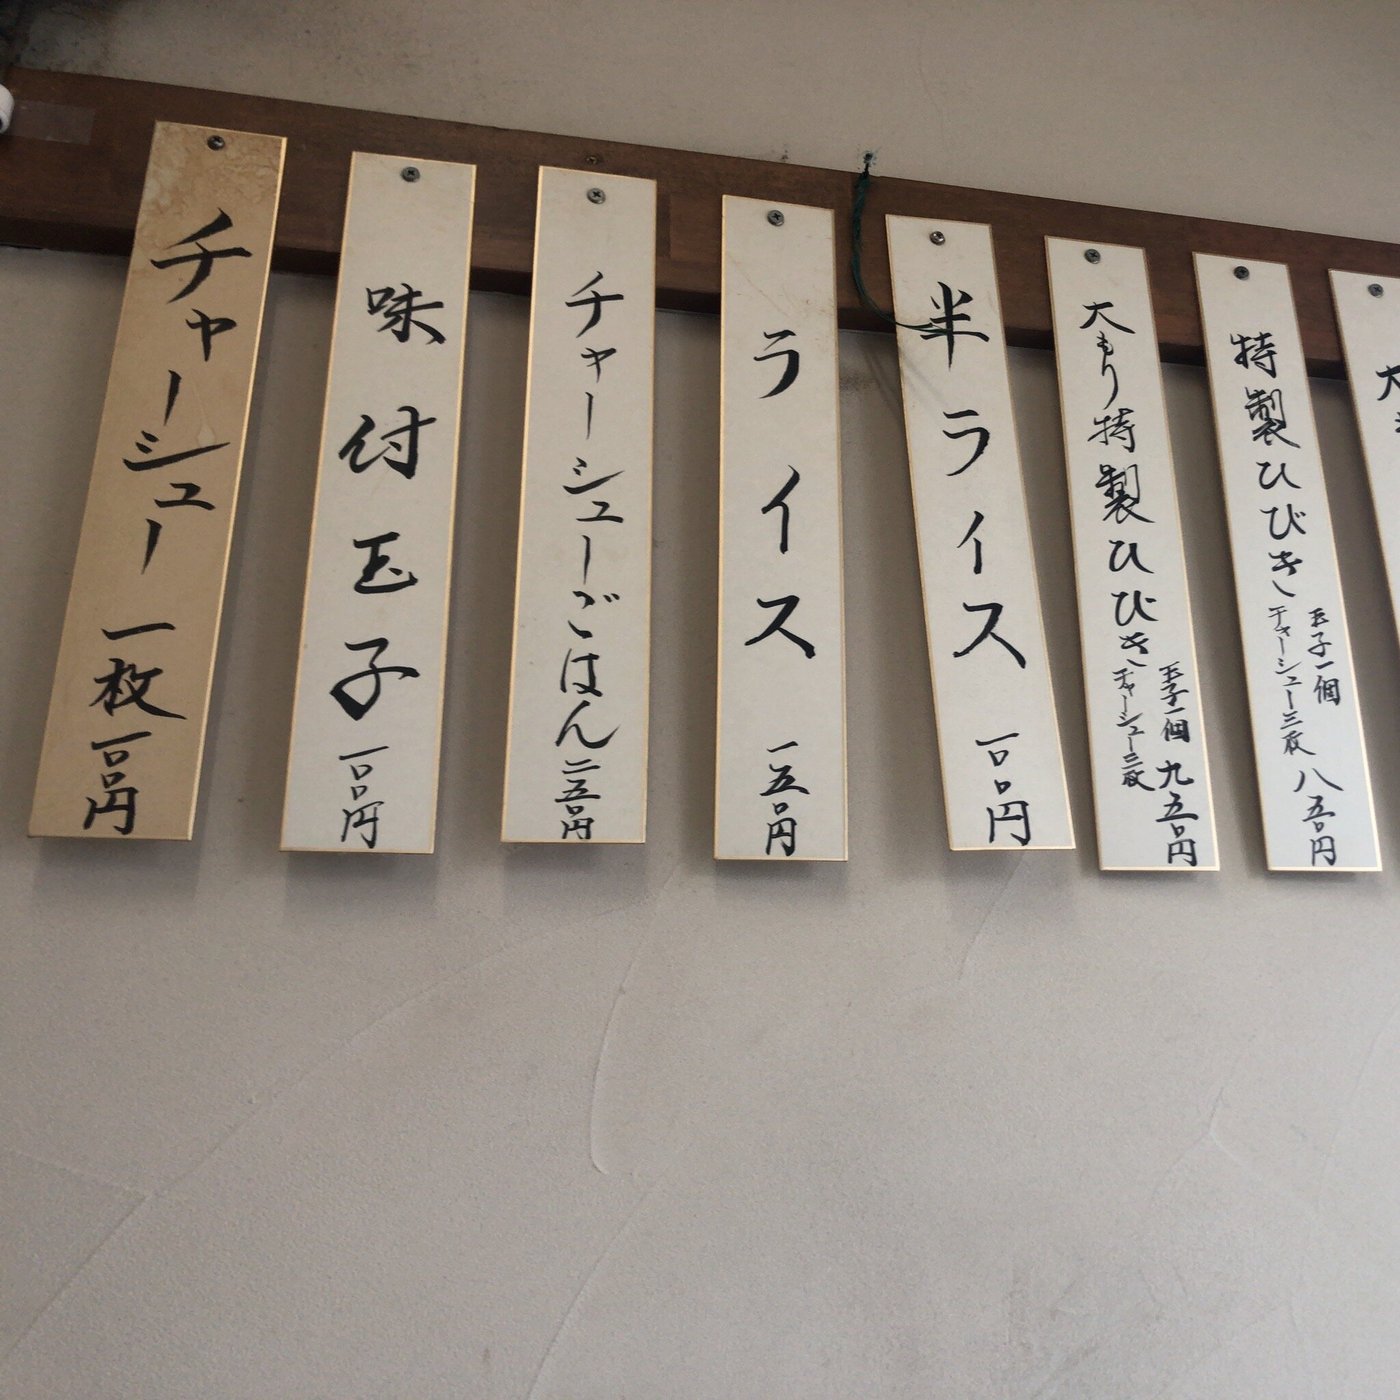 大
特製ひびき 玉子一個 チャーシュー三枚 八五〇円
大もり特製ひびき 玉子一個 チャーシュー三枚 九五〇円
半ライス 一〇〇円
ライス 一五〇円
チャーシューごはん 二五〇円
味付玉子 一〇〇円
チャーシュー 一枚 一〇〇円